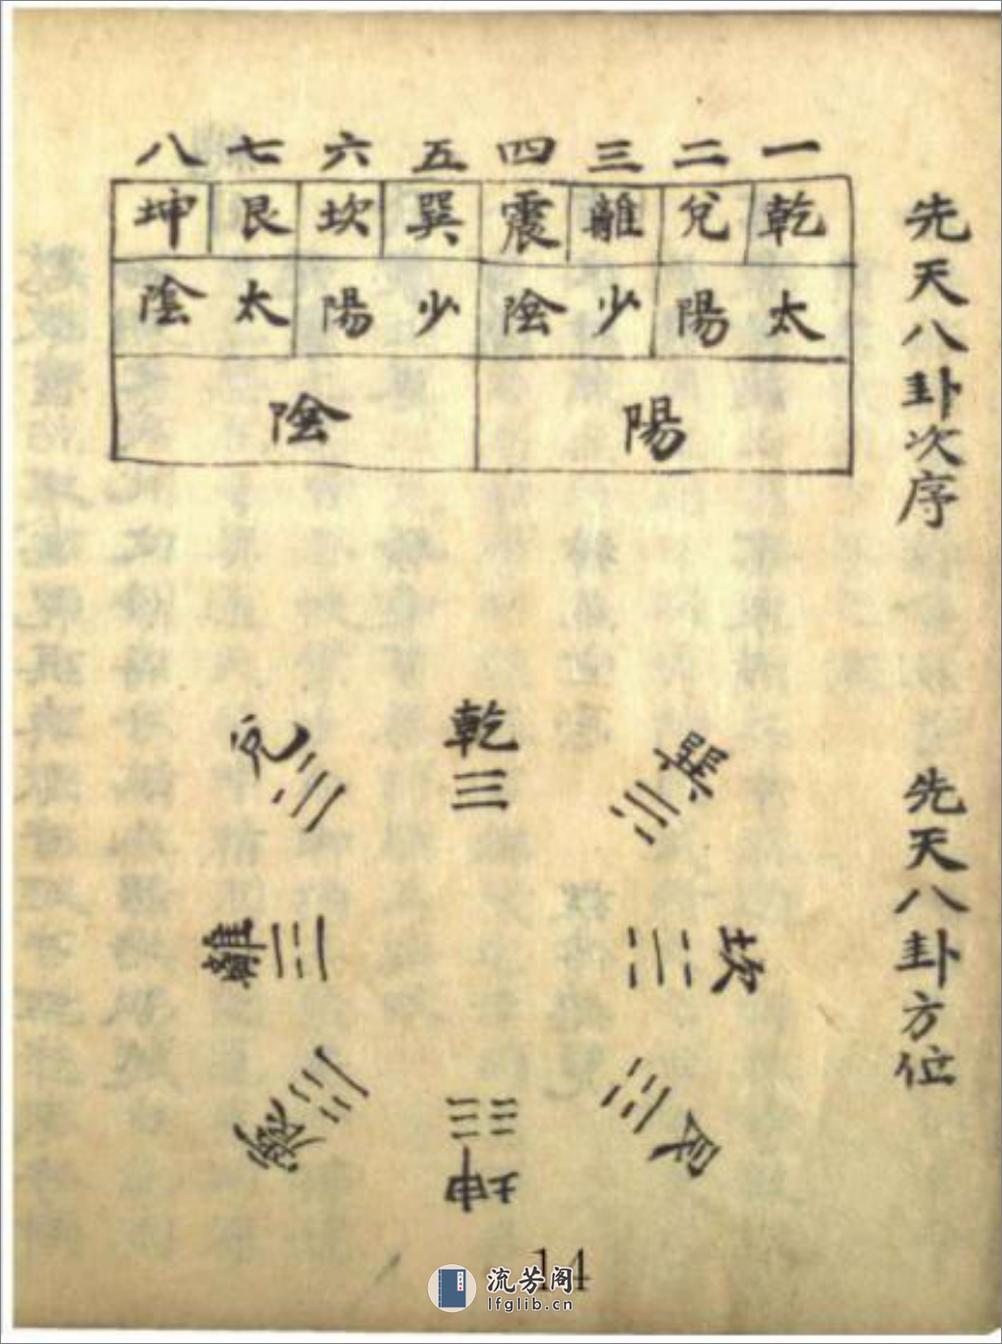 先天八卦次序
一 二 三 四 五 六 七 八
乾 兌 離 震 巽 坎 艮 坤
太陽 少陰 少陽 太陰
陽 陰
先天八卦方位
乾 ☰
兌 ☱
離 ☲
震 ☳
巽 ☴
坎 ☵
艮 ☶
坤 ☷
14
流芳阁
lfglib.cn